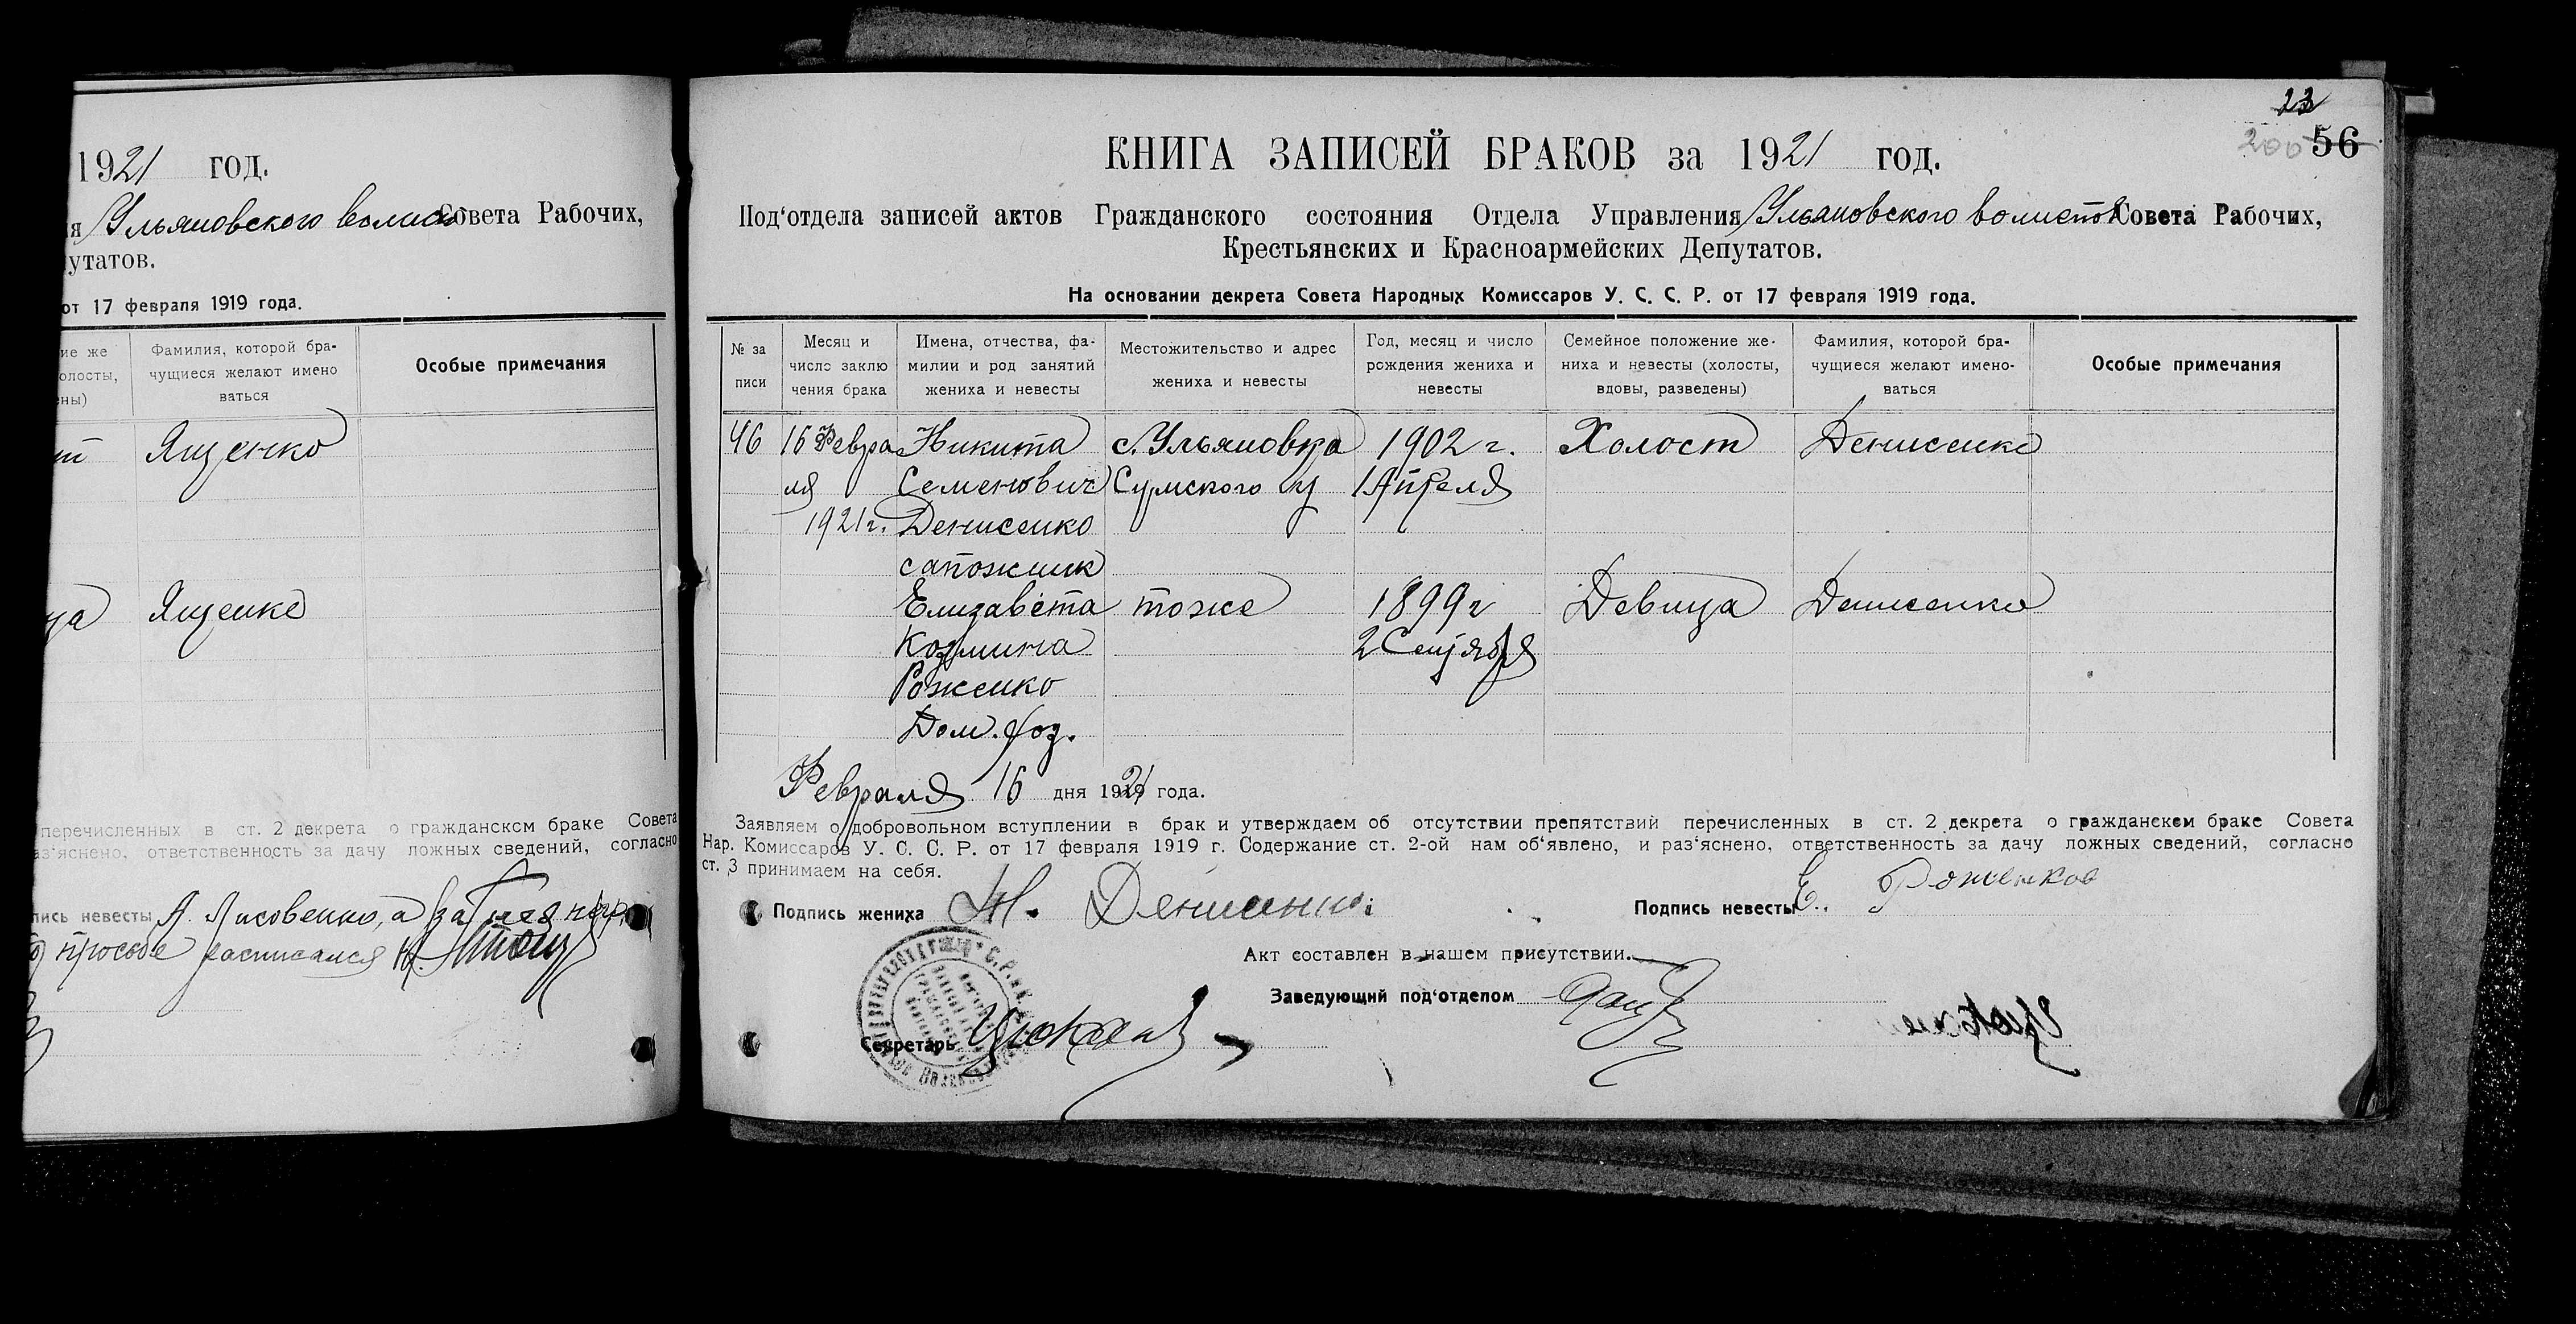 1921 год.
я Ульяновского волисп Совета Рабочих,
путатов.
от 17 февраля 1919 года.
ие же
олосты,
ены)
Фамилия, которой бра-
чущиеся желают имено
ваться
Особые примечания
т Ященко
ца Ященко
перечисленных в ст. 2 декрета о гражданском браке Совета
аз'яснено, ответственность за дачу ложных сведений, согласно
пись невесты А. Лисовенко, а за нея негр
просьбе расписался
23
200 56
КНИГА ЗАПИСЕЙ БРАКОВ за 1921 год.
Под'отдела записей актов Гражданского состояния Отдела Управления Ульяновского волиспол Совета Рабочих,
Крестьянских и Красноармейских Депутатов.
На основании декрета Совета Народных Комиссаров У. С. С. Р. от 17 февраля 1919 года.
№ за
писи
Месяц и
число заклю
чения брака
Имена, отчества, фа-
милии и род занятий
жениха и невесты
Местожительство и адрес
жениха и невесты
Год, месяц и число
рождения жениха и
невесты
Семейное положение же-
ниха и невесты (холосты,
вдовы, разведены)
Фамилия, которой бра-
чущиеся желают имено-
ваться
Особые примечания
46 16 Февра Никита с. Ульяновка 1902 г. Холост Денисенко
ля Семенович Сумского у 1 Апреля
1921 г. Денисенко
сапожник
Елизавета тоже 1899 г Девица Денисенко
Козмина 2 Сентября
Роженко
Дом. хоз.
Февраля 16 дня 1921 года.
Заявляем о добровольном вступлении в брак и утверждаем об отсутствии препятствий перечисленных в ст. 2 декрета о гражданском браке Совета
Нар. Комиссаров У. С. С. Р. от 17 февраля 1919 г. Содержание ст. 2-ой нам об'явлено, и раз'яснено, ответственность за дачу ложных сведений, согласно
ст. 3 принимаем на себя.
Подпись жениха Н. Денисенко Подпись невесты Е. Роженкова
Акт составлен в нашем присутствии.
Заведующий под'отделом
Секретарь